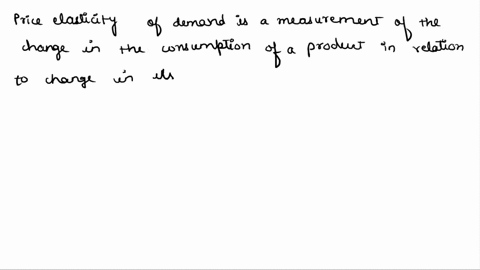 Price elasticity of demand is a measurement of the
change in the consumption of a product in relation
to change in its